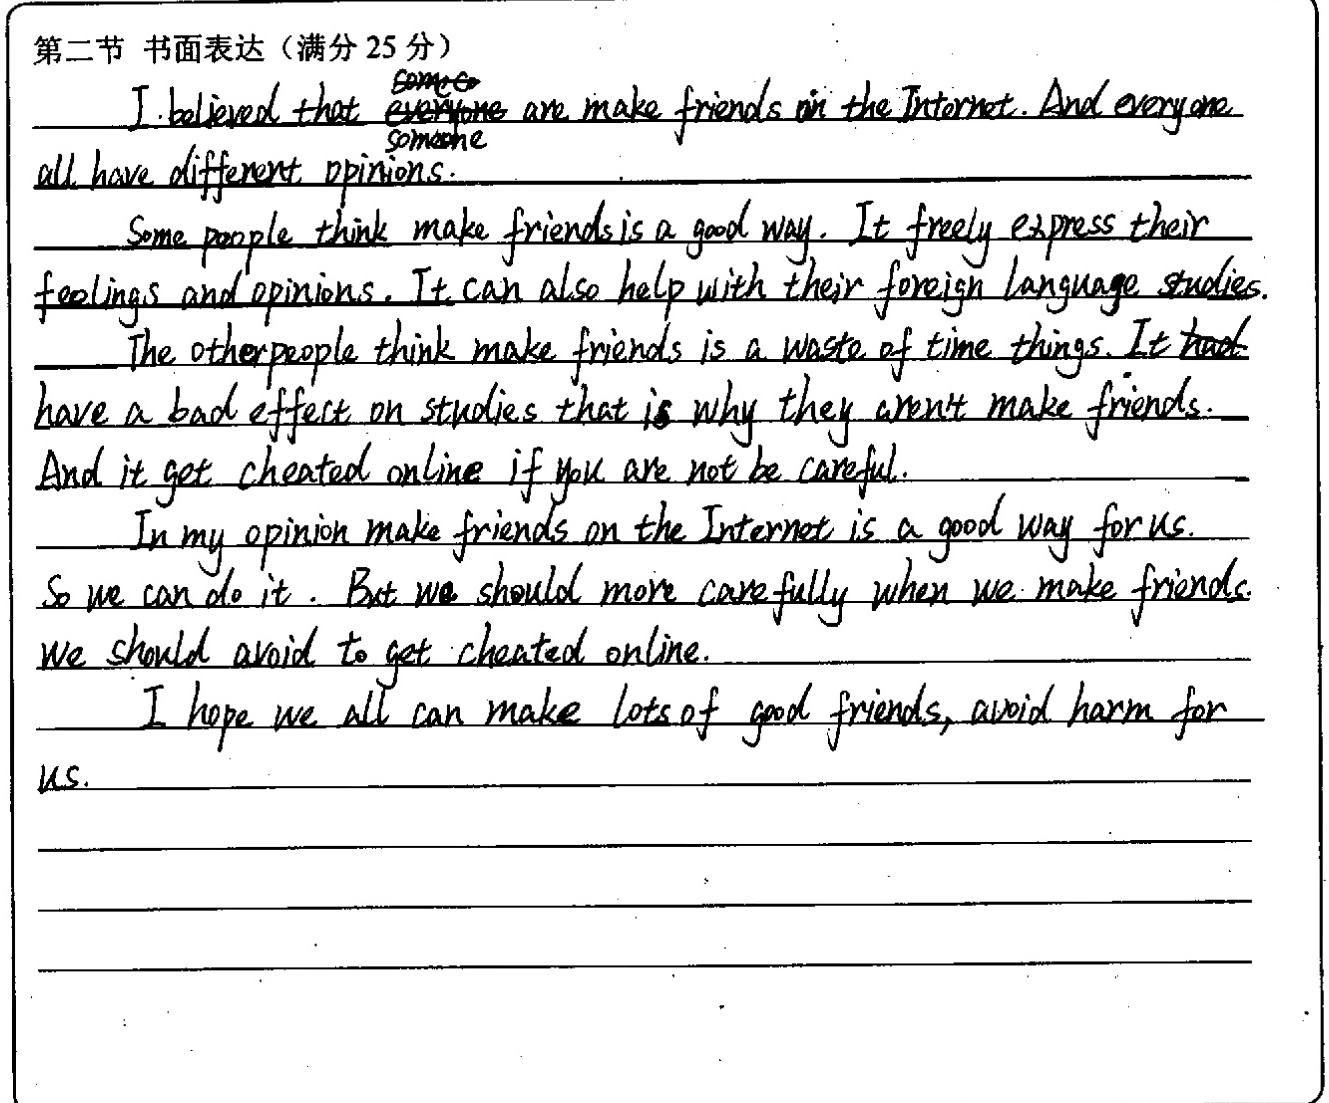 第二节 书面表达（满分 25 分）
I believed that someone are make friends on the Internet. And everyone
all have different opinions.
Some people think make friends is a good way. It freely express their
feelings and opinions. It can also help with their foreign language studies.
The other people think make friends is a waste of time things. It had
have a bad effect on studies that is why they aren't make friends.
And it get cheated online if you are not be careful.
In my opinion make friends on the Internet is a good way for us.
So we can do it. But we should more carefully when we make friends.
We should avoid to get cheated online.
I hope we all can make lots of good friends, avoid harm for
us.